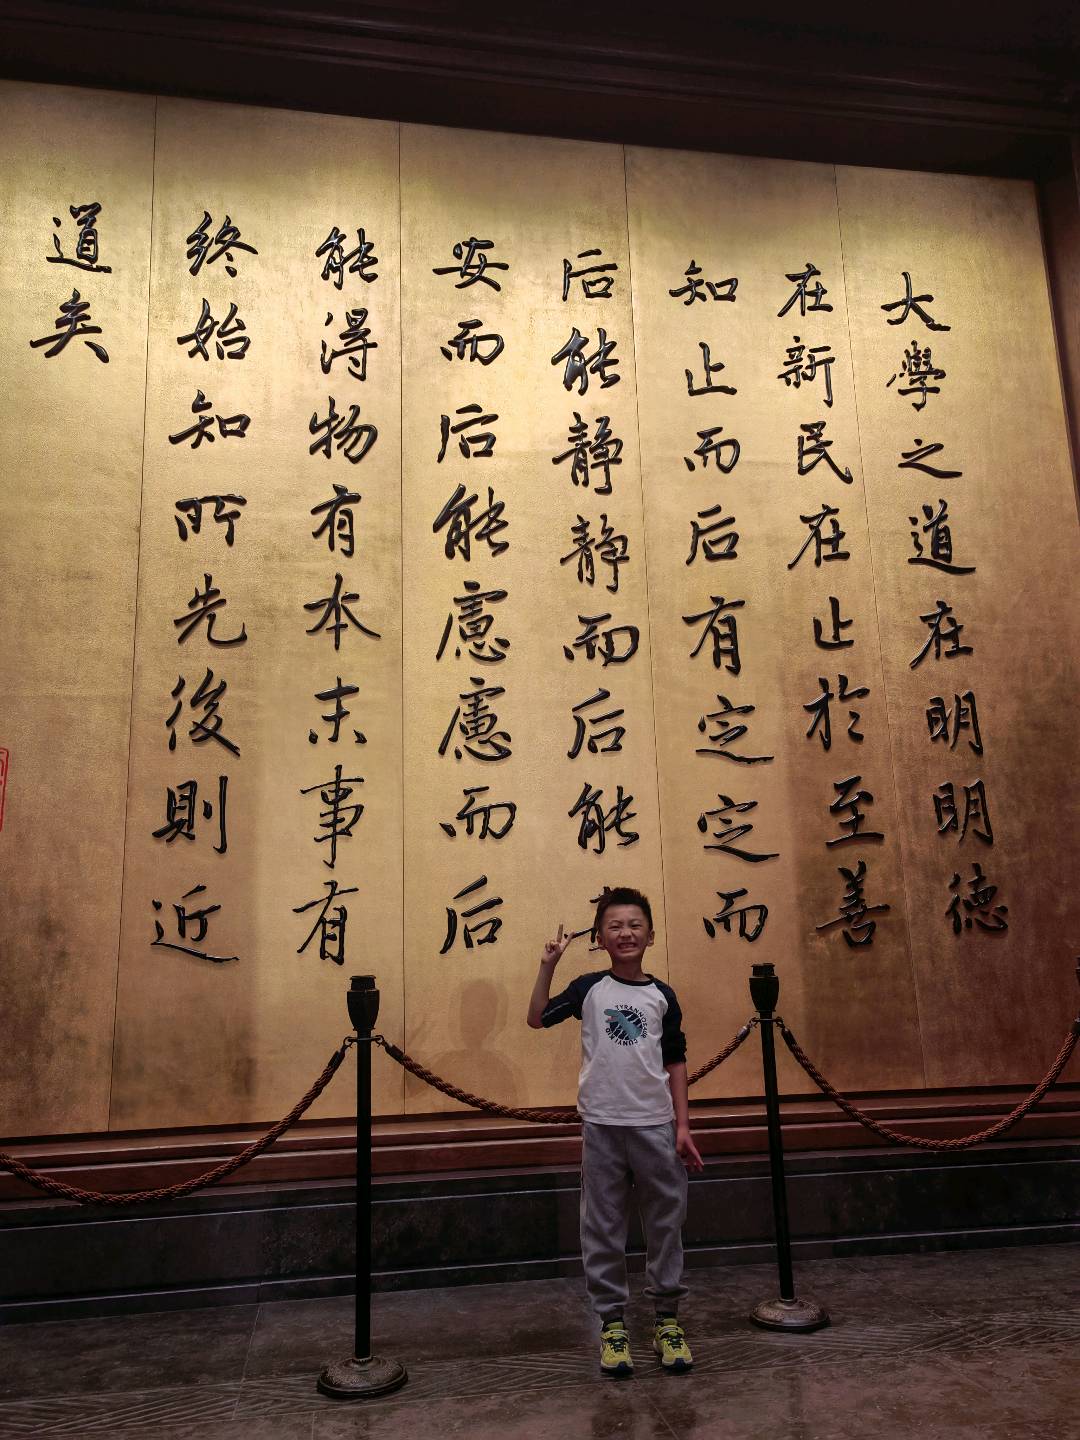 大學之道在明明德
在新民在止於至善
知止而后有定定而
后能静静而后能
安而后能慮慮而后
能得物有本末事有
終始知所先後則近
道矣
TYRANNOSAUR